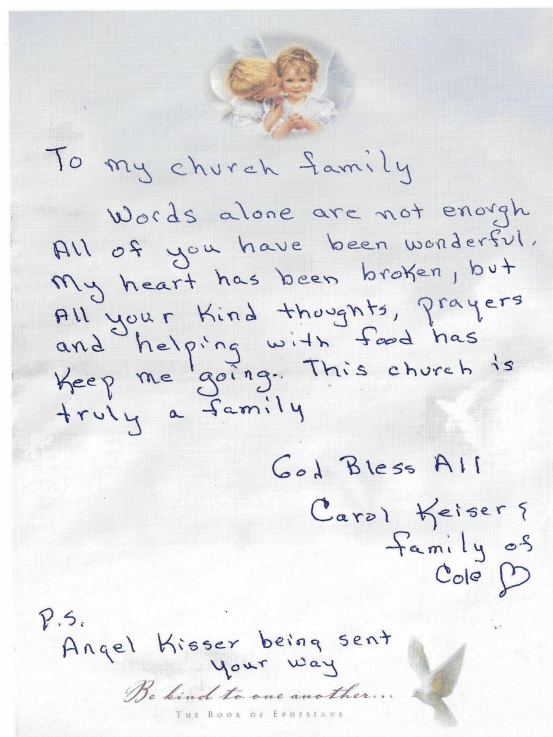 To my church family
Words alone are not enorgh
All of you have been wonderful.
My heart has been broken, but
All your Kind thoughts, prayers
and helping with food has
Keep me going. This church is
truly a family
God Bless All
Carol Keiser &
family of
Cole ♡
P.S.
Angel Kisser being sent
your way
Be kind to one another...
THE BOOK OF EPHESIANS